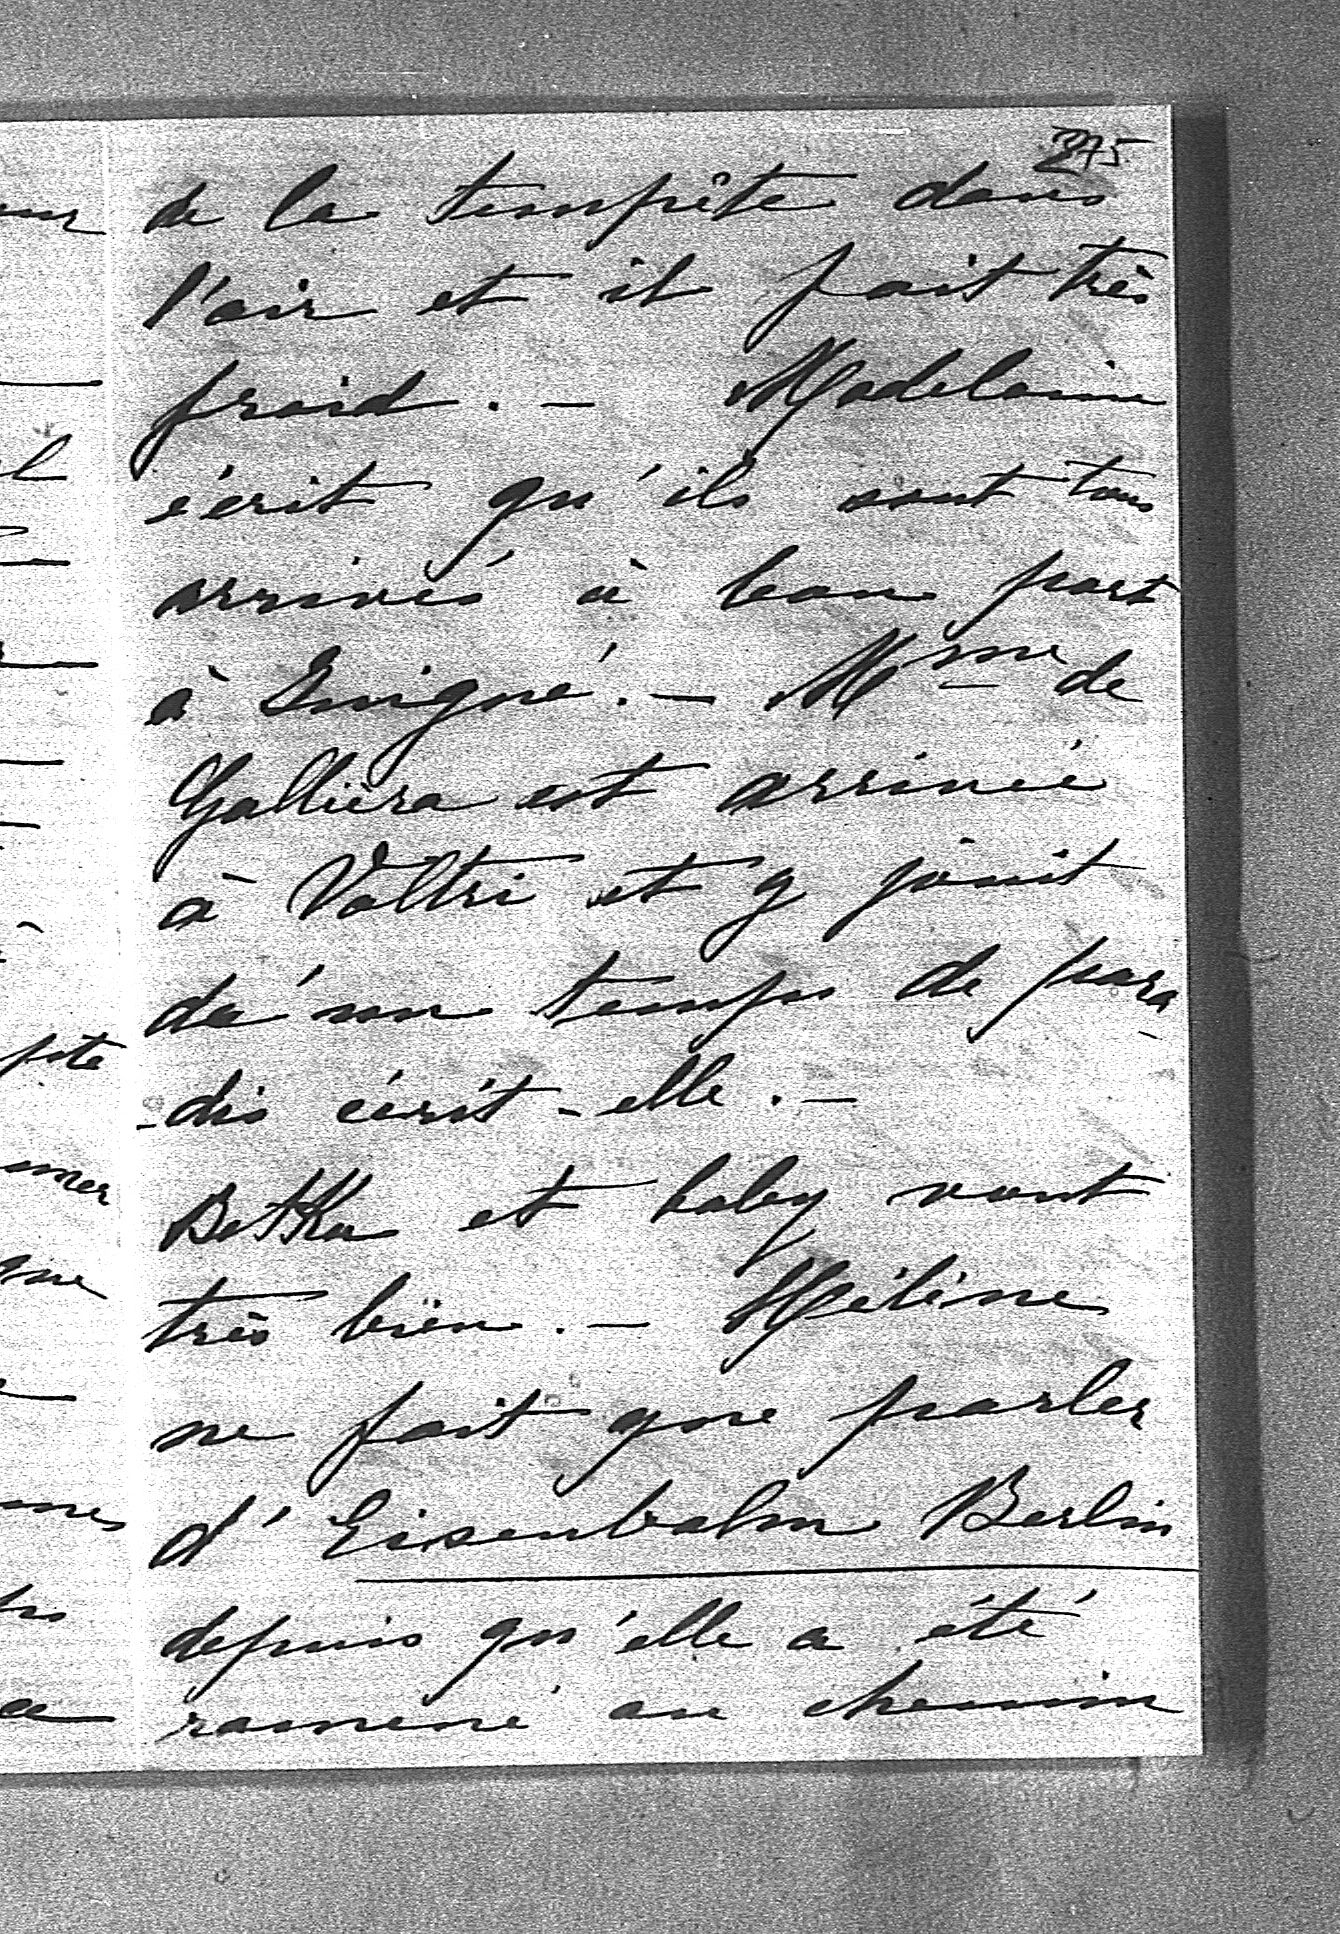 275.
de la tempête dans
l'air et il fait très
froid. — Madelaine
écrit qu'ils sont tous
arrivés à bon port
à — Mme de
Galliera est arrivée
à Voltri et y jouit
de'un temps de para-
-dis écrit-elle. —
Betka et baby vont
très bien. — Hélène
ne fait que parler
d'Eisenbahn Berlin
depuis qu'elle a été
ramené au chemin